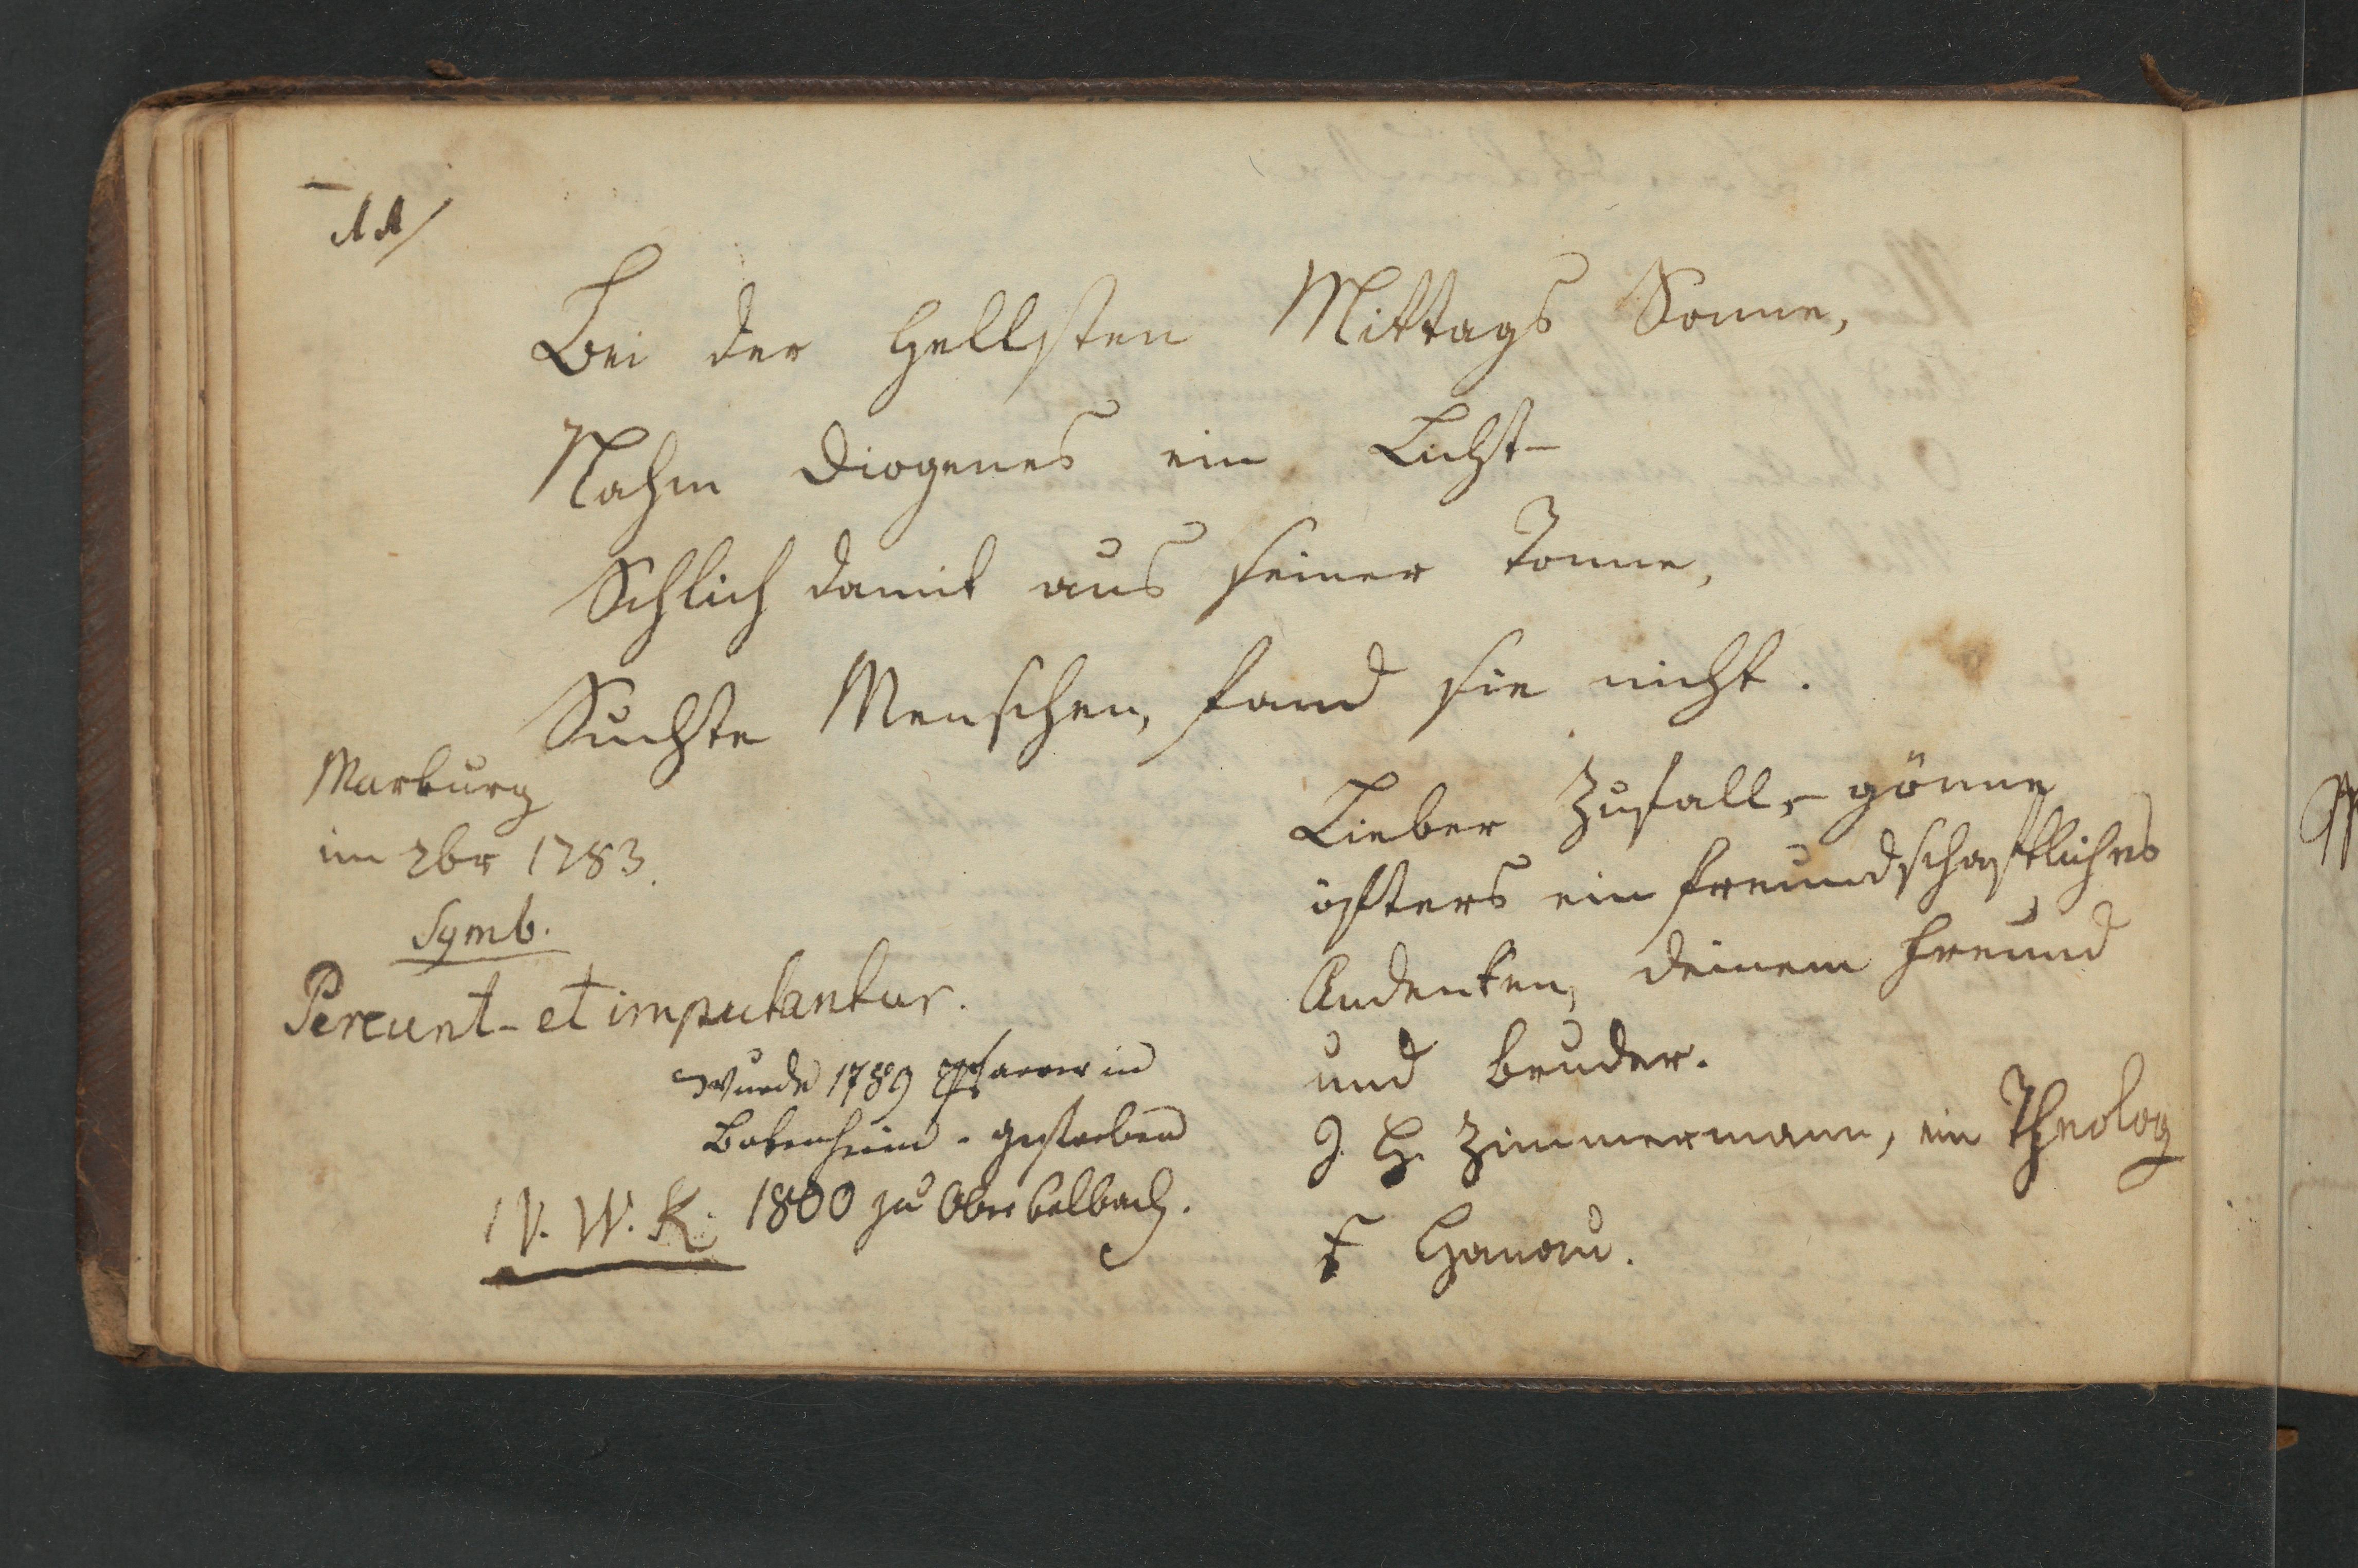 11/
Bei der hellsten Mittags Sonne,
Nahm Diogenes ein Licht-
Schlich damit aus seiner Tonne,
Suchte Menschen, fand sie nicht.
Marburg
im 2br 1783.
Symb.
Pereunt - et imputantur.
wurde 1789 Pfarrer in
Bokenheim - gestorben
1800 zu Ober
W. K.
Lieber Zufall, - gönne
öfters ein freundschaftliches
Andenken, deinem Freund
und Bruder.
J. H. Zimmermann, ein Theolog
Hanau.